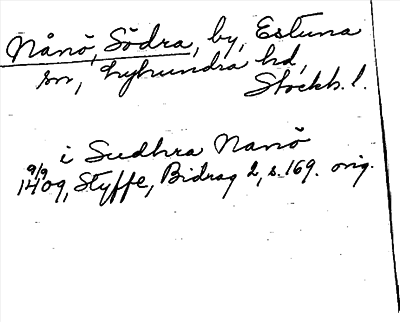 Nånö, Södra, by, Estuna
sn, Lyhundra hd,
Stockh. l.
i Sudhra Nanö
9/9
1409, Styffe, Bidrag 2, s. 169. orig.